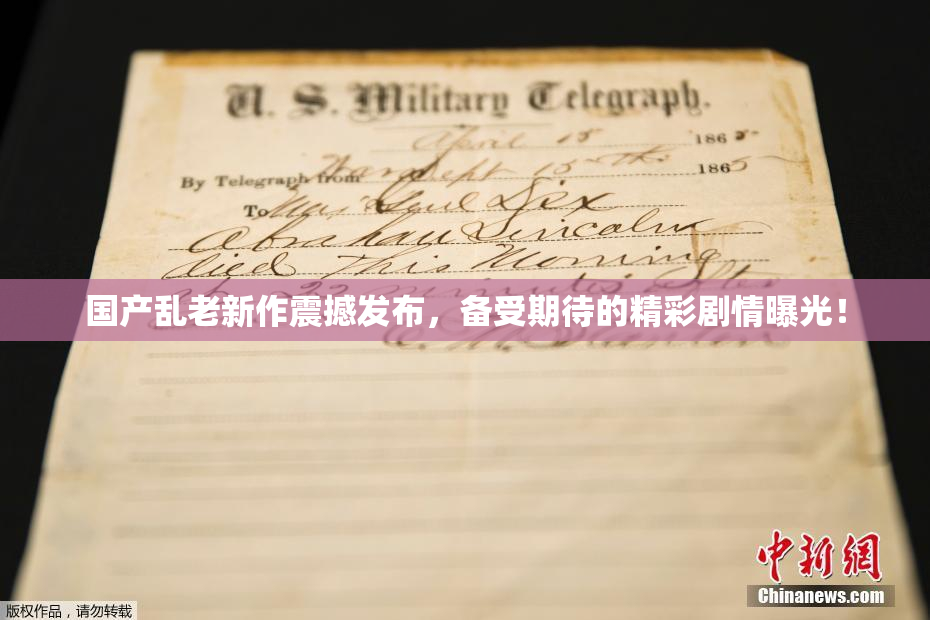 U. S. Military Telegraph.
April 15 1865
By Telegraph from War Dept 15th 1865
To Maj Genl Dix
Abraham Lincoln
died This Morning
at 22 minutes after
国产乱老新作震撼发布，备受期待的精彩剧情曝光！
E. M. Stanton
中新网
Chinanews.com
版权作品，请勿转载